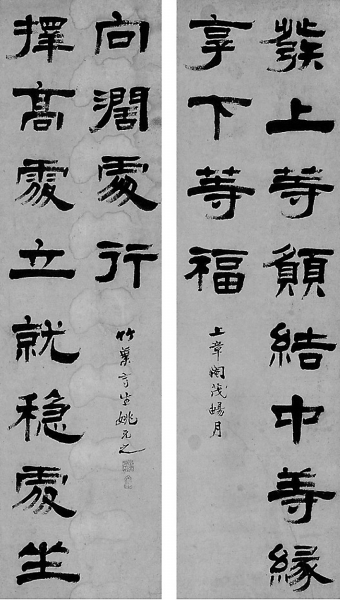 發上等願結中等緣
享下等福
上章閹茂暢月
擇高處立就穩處坐
向闊處行
竹葉亭生姚元之